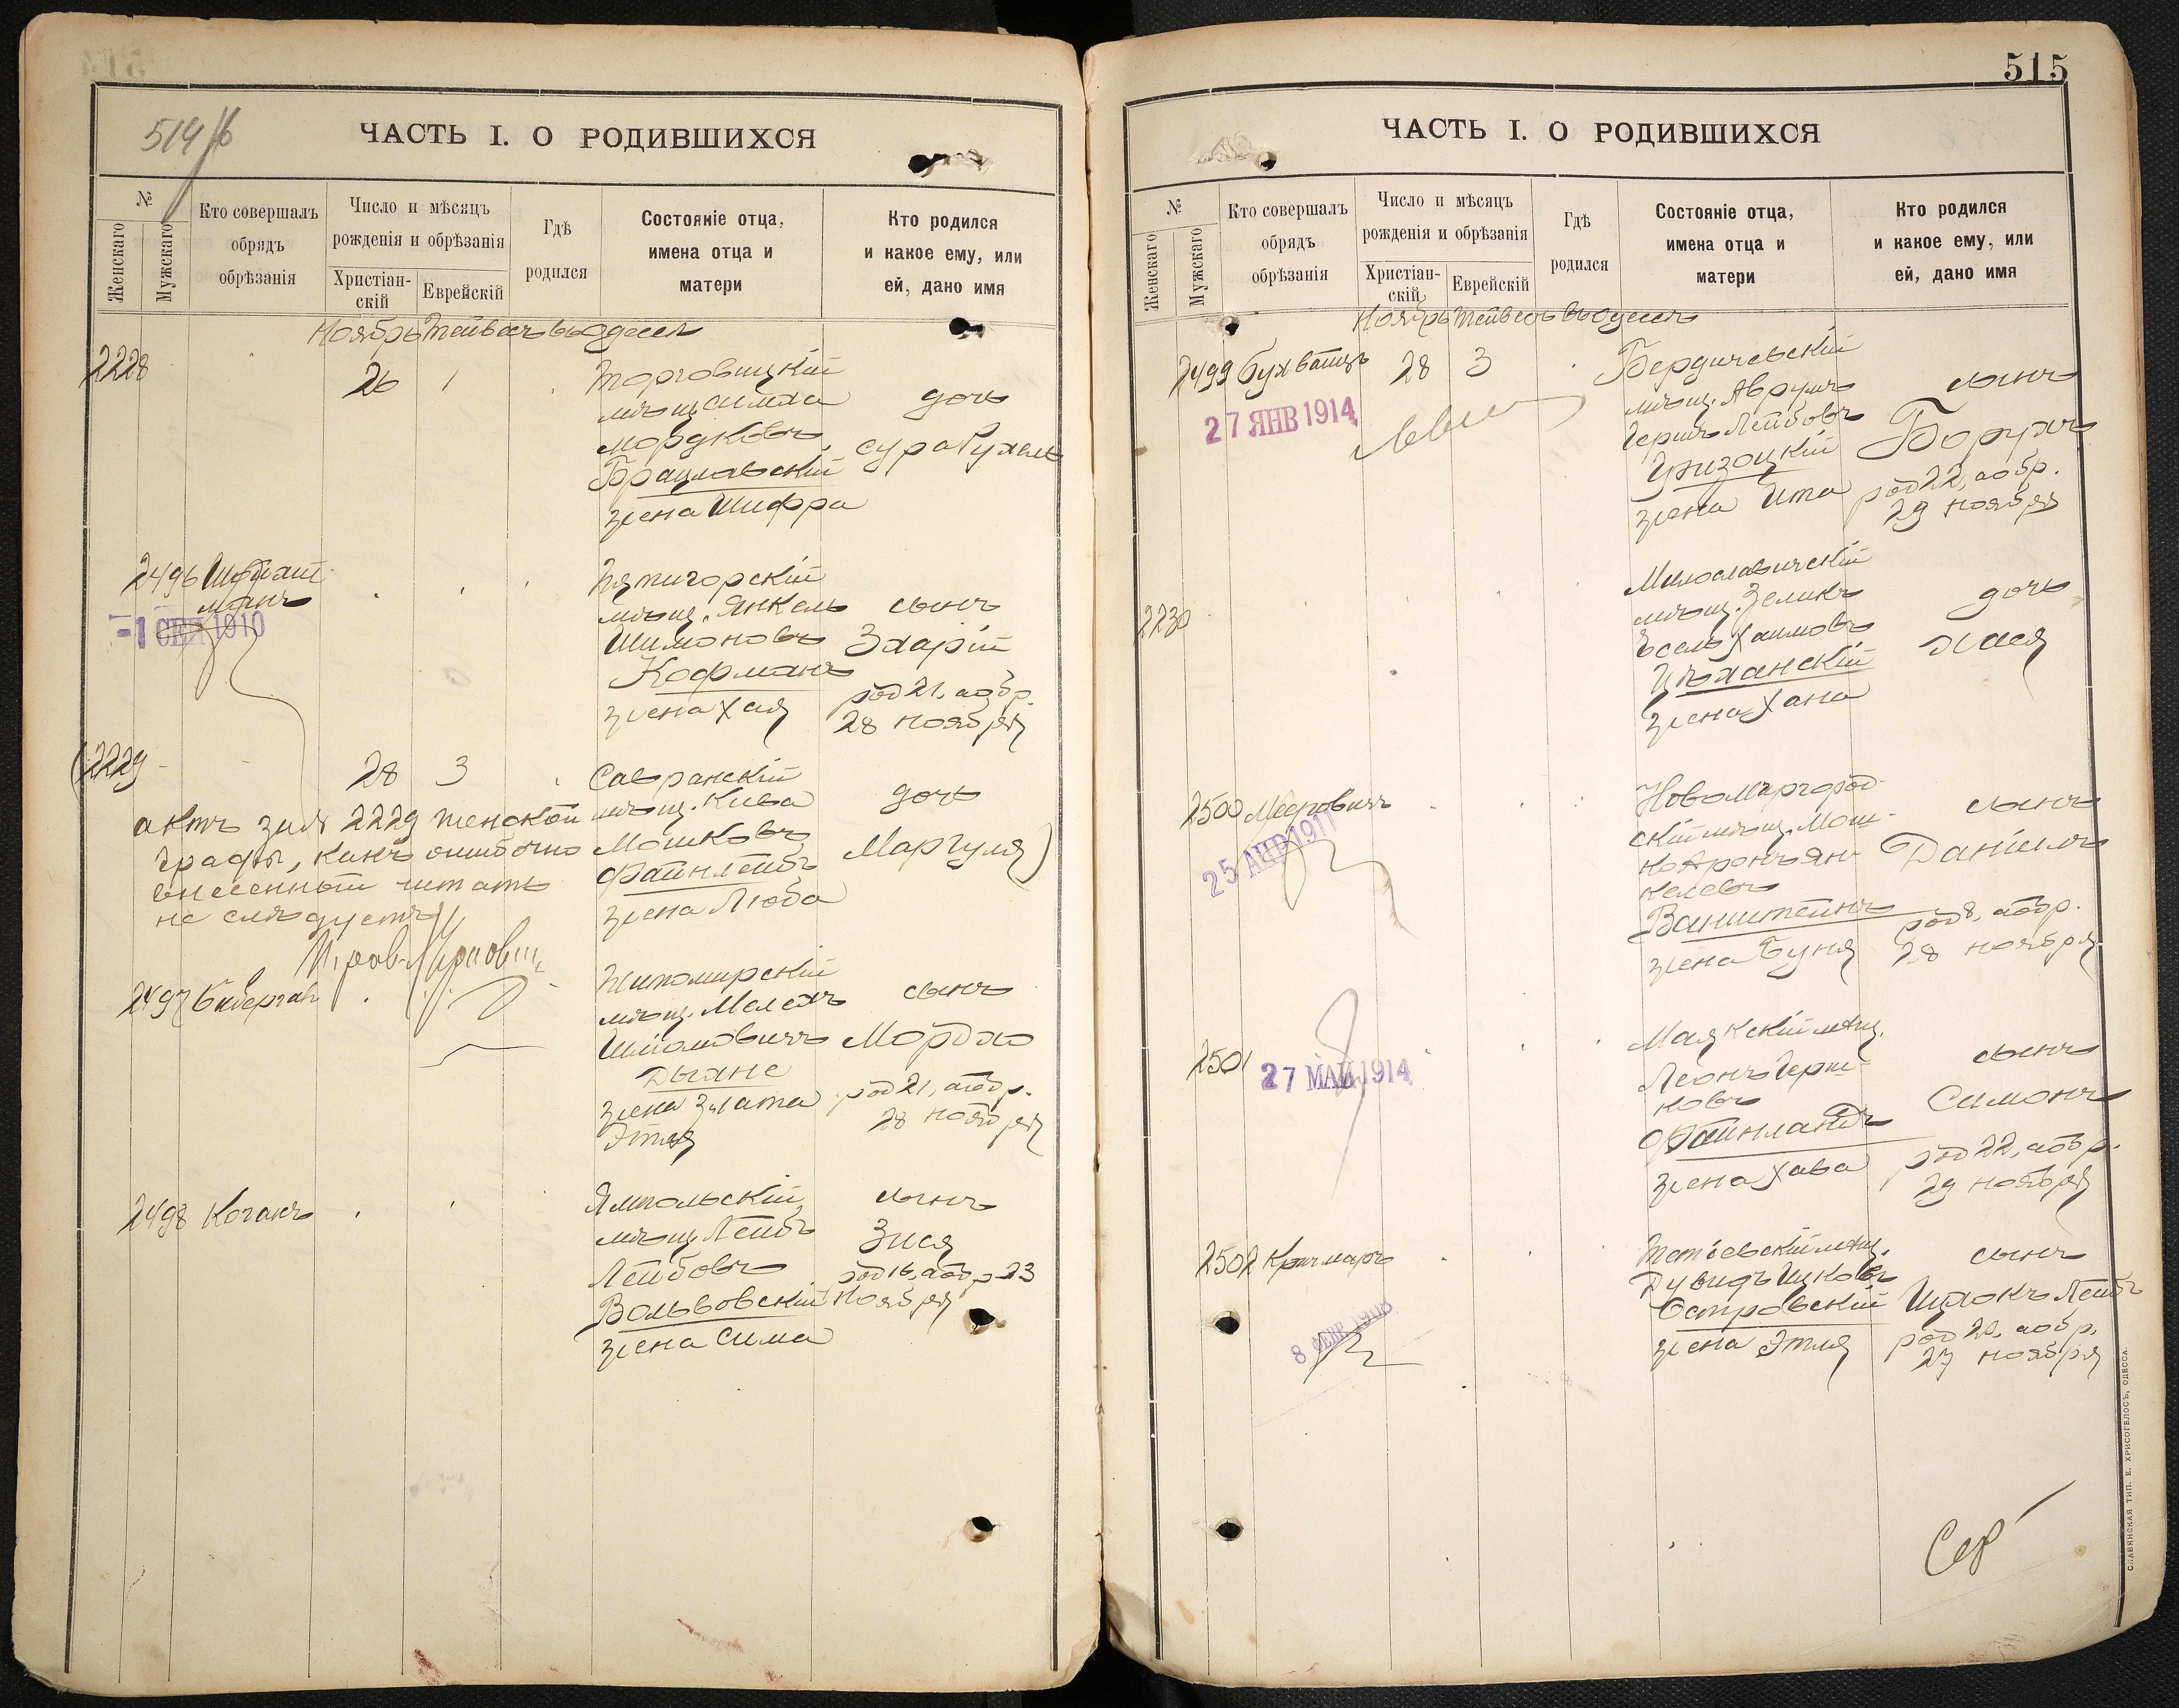 514/б
ЧАСТЬ I. О РОДИВШИХСЯ
№
Женскаго
Мужскаго
Кто совершалъ
обрядъ
обрѣзанія
Число и мѣсяцъ
рожденія и обрѣзанія
Христіан-
скій
Еврейскій
Гдѣ
родился
Состояніе отца,
имена отца и
матери
Кто родился
и какое ему, или
ей, дано имя
Ноябрь Тейвесъ въ Одессѣ
2228 26 1
Торговицкій
мѣщ. Симха
Мордковъ
Брацлавскій
жена Шифра
дочь
Сура Рухель
2496
манъ
-1 СЕН 1910
Пятигорскій
мѣщ. Янкель
Шимоновъ
Кофманъ
жена Хая
сынъ
Захарій
род 21, а обр.
28 ноября
(2229 28 3
Савранскій
мѣщ. Кива
Мошковъ
Файнлейбъ
жена Люба
дочь
Маргуля)
актъ за № 2229 женской
графы, какъ ошибочно
внесенный читать
не слѣдуетъ
2497
Житомирскій
мѣщ. Мелехъ
Шліомовичъ
Дыхне
жена Злата
Этля
сынъ
Мордко
род 21, а обр.
28 ноября
2498 Коганъ
Ямпольскій
мѣщ. Лейбъ
Лейбовъ
Вольвовскій
жена Сима
сынъ
Зися
род 16, а обр 23
ноября
515
ЧАСТЬ I. О РОДИВШИХСЯ
№
Женскаго
Мужскаго
Кто совершалъ
обрядъ
обрѣзанія
Число и мѣсяцъ
рожденія и обрѣзанія
Христіан-
скій
Еврейскій
Гдѣ
родился
Состояніе отца,
имена отца и
матери
Кто родился
и какое ему, или
ей, дано имя
Ноябрь Тейвесъ въ Одессѣ
2499 28 3
27 ЯНВ 1914
Бердичевскій
мѣщ. Аврумъ
Гершъ Лейбовъ
жена Ита
сынъ
Борухъ
род 22, а обр.
29 ноября
2230
Милославичскій
мѣщ. Зеликъ
Іосель Хаимовъ
Цѣханскій
жена Хана
дочь
Хася
2500 Мееровичъ
25 АПР 1911
Новомиргород-
скій мѣщ. Мош-
ко Аронъ Ян-
келевъ
Ванштейнъ
жена Буня
сынъ
Даніилъ
род 8, а обр.
28 ноября
2501
27 МАЙ 1914
Маякскій мѣщ.
Леонъ Герш-
ковъ
Файнландъ
жена Хава
сынъ
Симонъ
род 22, а обр.
29 ноября
2502 Кричмаръ
8 ФЕВР 1908
Тетіевскій мѣщ.
Дувидъ Ицковъ
Островскій
жена Этля
сынъ
Ицхокъ Лейбъ
род 20, а обр.
27 ноября
СЛАВЯНСКАЯ ТИП. Е. ХРИСОГЕЛОСЪ, ОДЕССА.